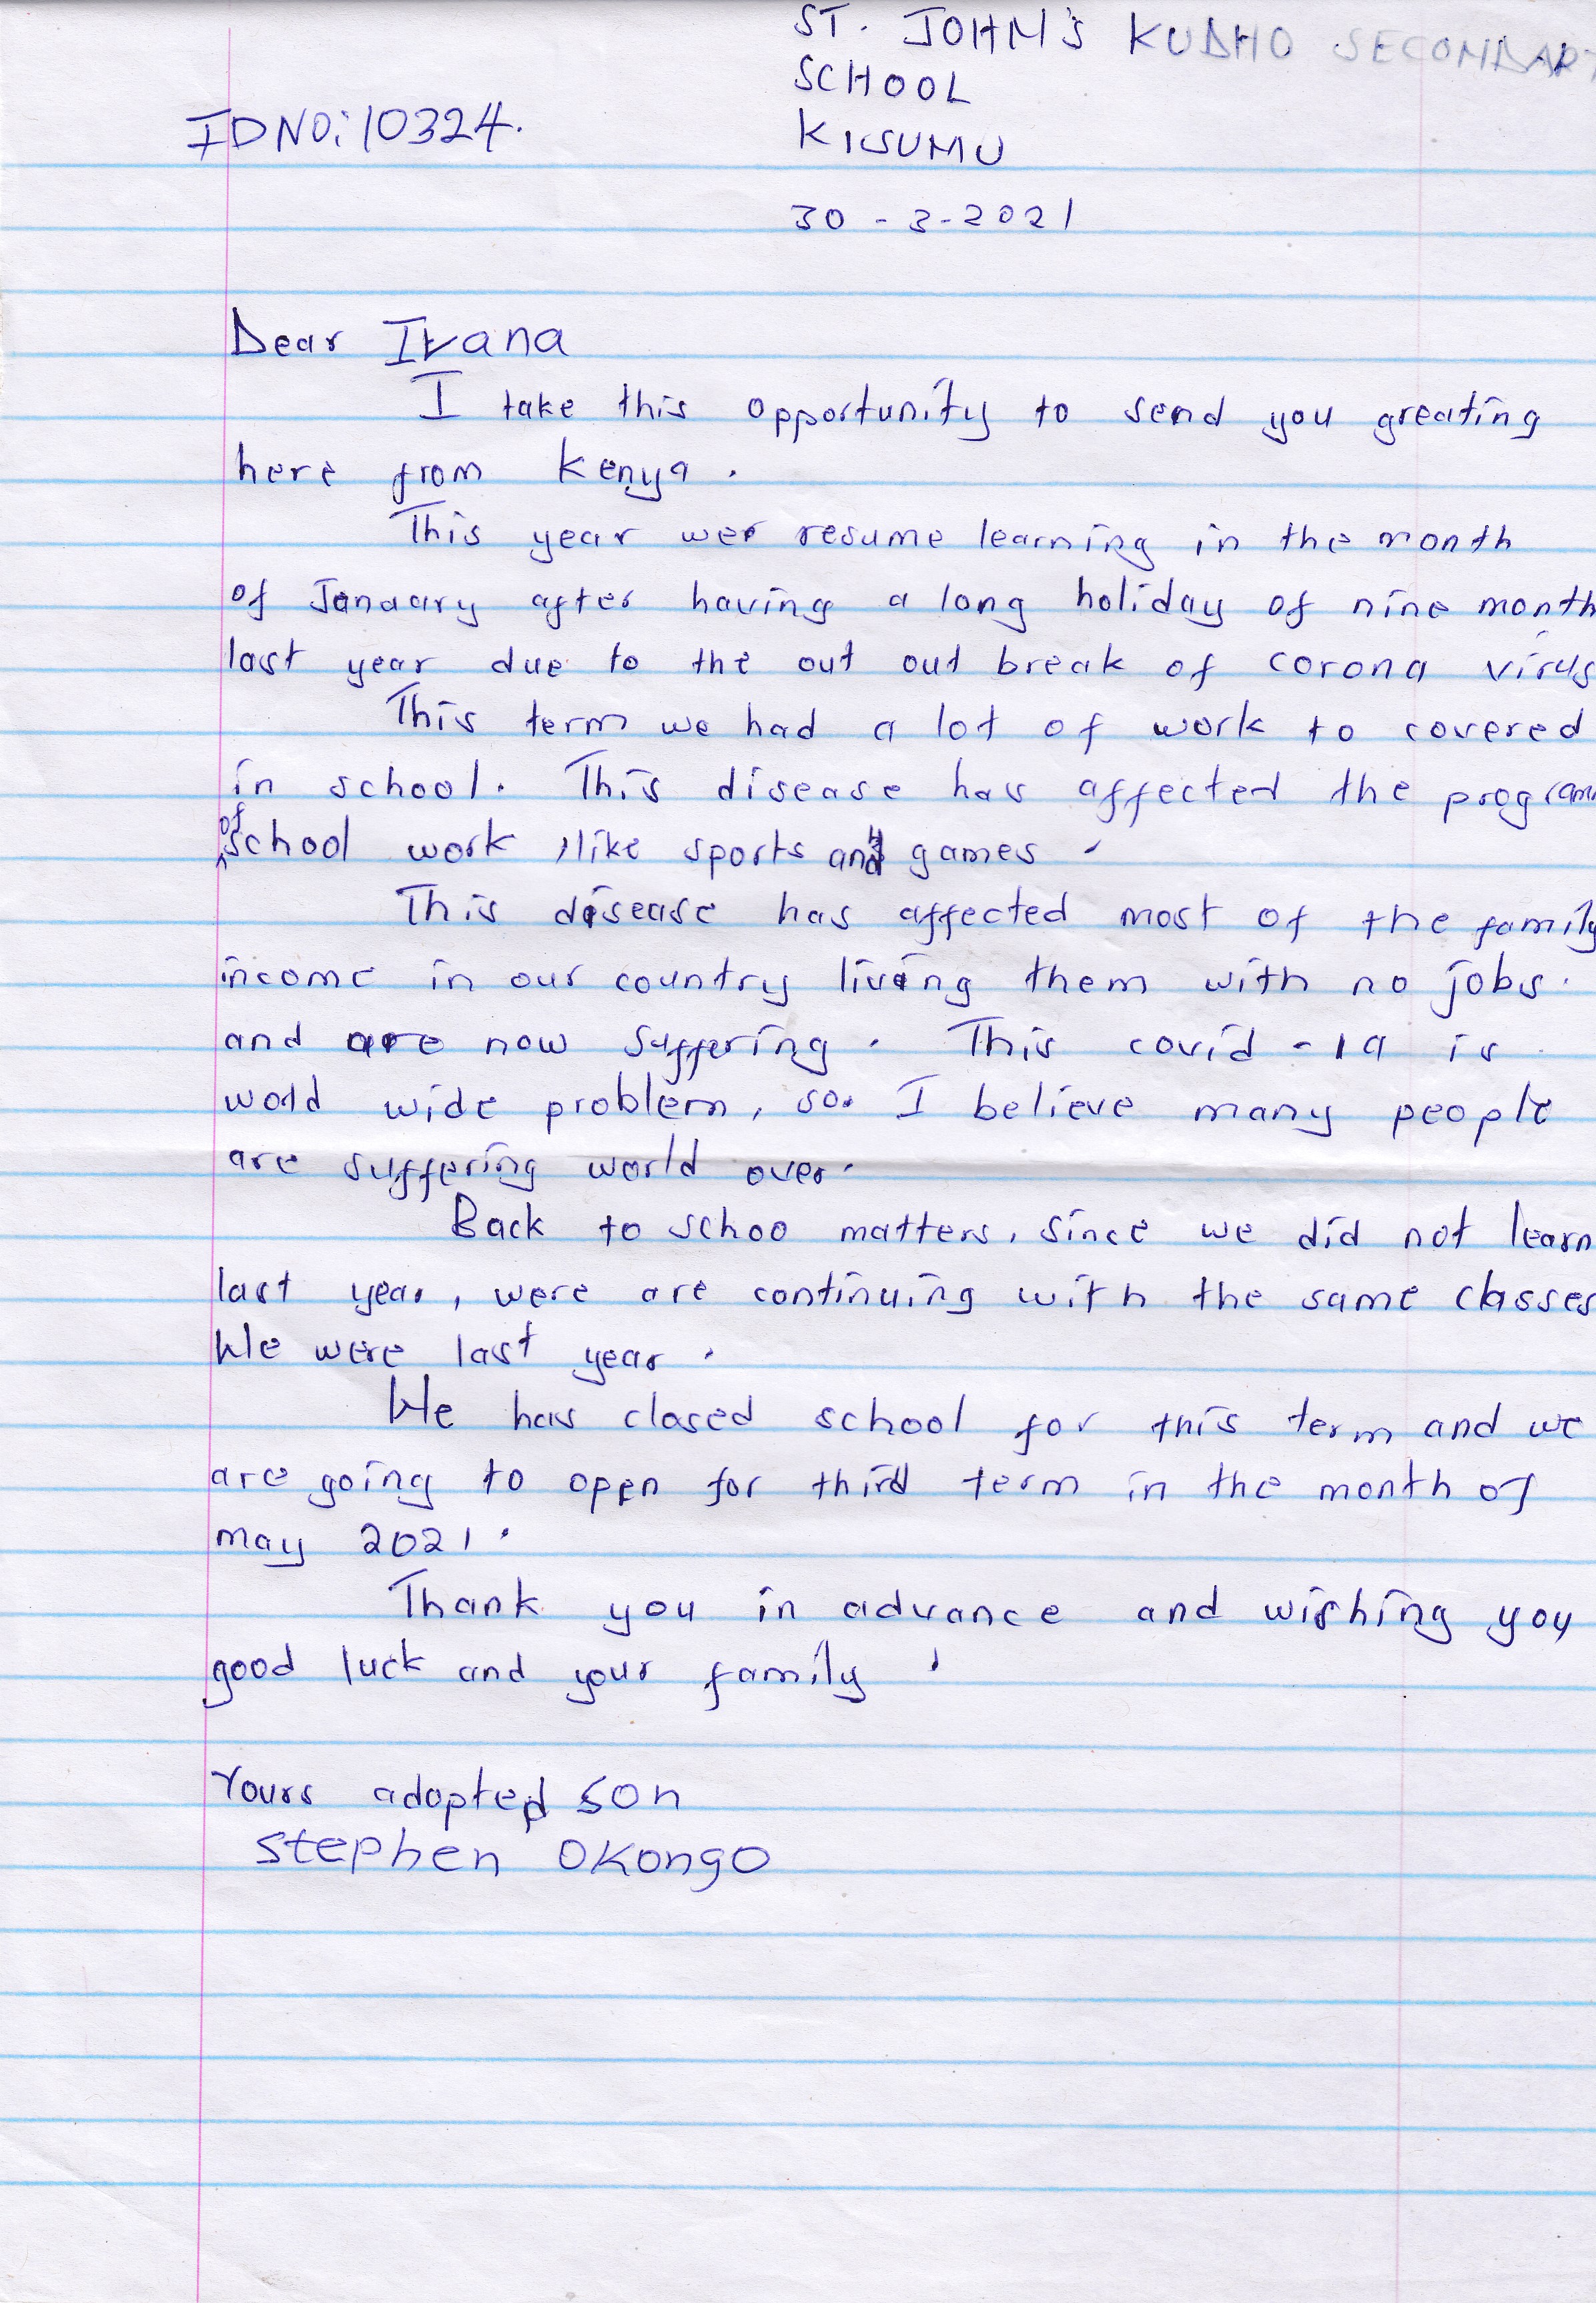 ST. JOHN'S KUDHO SECONDARY
SCHOOL
IDNO: 10324.
KISUMU
30 - 3 - 2021
Dear Ivana
I take this opportunity to send you greating
here from Kenya.
This year wer resume learning in the month
of Janaary after having a long holiday of nine month
last year due to the out out break of corona virus
This term we had a lot of work to covered
in school. This disease has affected the program
of school work, like sports and games.
This disease has affected most of the family
income in our country living them with no jobs.
and are now suffering. This covid - 19 is
world wide problem, so. I believe many people
are suffering world over.
Back to schoo matters, since we did not learn
last year, were are continuing with the same classes
We were last year.
We has closed school for this term and we
are going to open for third term in the month of
may 2021.
Thank you in advance and wishing you
good luck and your family.
Yours adopted son
Stephen Okongo